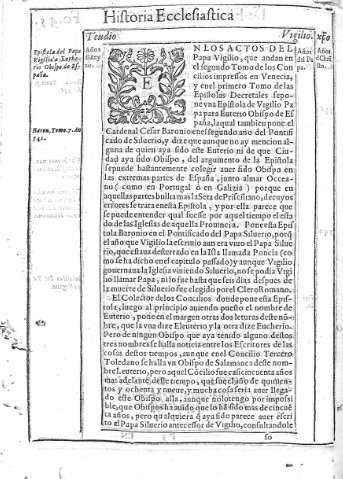 Historia Ecclesiastica
Teudio
Vigilio.
Epistola del Papa
Vigilio a Euthe-
rio Obispo de Es-
paña.
EN LOS ACTOS DEL
Papa Vigilio, que andan en
el segundo Tomo de los Con
cilios impressos en Venecia,
y en el primero Tomo de las
Epistolas Decretales se po-
ne vna Epistola de Vigilio Pa
pa para Euterio Obispo de Es
paña, la qual tambien pone el
Baron. Tomo. 7. Ao
Cardenal Cesar Baronio en el segundo año del Pontifi
cado de Siluerio, y dize que aunque no ay mencion al-
guna de quien aya sido este Euterio ni de que Ciu-
dad aya sido Obispo, del argumento de la Epistola
se puede bastantemente colegir auer sido Obispo en
las extremas partes de España, junto al mar Occea-
no (como en Portugal ò en Galizia) porque en
aquellas partes bullia mas la Seta de Prisciliano, de cuyos
errores se trata en esta Epistola, y por ella parece que
se puede entender qual fuesse por aquel tiempo el esta
do de las Iglesias de aquella Prouincia. Pone esta Epis
tola Baronio en el Pontificado del Papa Siluerio, porq̃
el año que Vigilio la escriuio aun era viuo el Papa Silue
rio, que estaua desterrado en la Isla llamada Poncia (co
mo se ha dicho en el capitulo passado) y aunque Vigilio
gouernaua la Iglesia viuiendo Siluerio, no se podia Virgi
lio llamar Papa, ni lo fue hasta que seis dias despues de
la muerte de Siluerio fue elegido por el Clero Romano.
El Colector de los Concilios donde pone esta Epis-
tola, luego al principio auiendo puesto el nombre de
Euterio, pone en el margen otras dos letras deste nõ-
bre, que la vna dize Eleuterio y la otra dize Eucherio.
Pero de ningun Obispo que aya tenido alguno destos
tres nombres se halla noticia entre los Escritores de las
cosas destos tiempos, aunque en el Concilio Tercero
Toledano se halla vn Obispo de Salamanca deste nom-
bre Leuterio, pero aquel Cõcilio fue casi cincuenta años
mas adelante deste tiempo, que fue el año de quinien-
tos y ochenta y nueue, y mucha cosa seria auer llega-
do este Obispo alla, aunque no lo tengo por imposi
ble, que Obispos ha auido que lo hã sido mas de cincuẽ
ta años, pero qualquiera q̃ aya sido parece auer escri
to el Papa Siluerio antecessor de Vigilio, consultandole
so